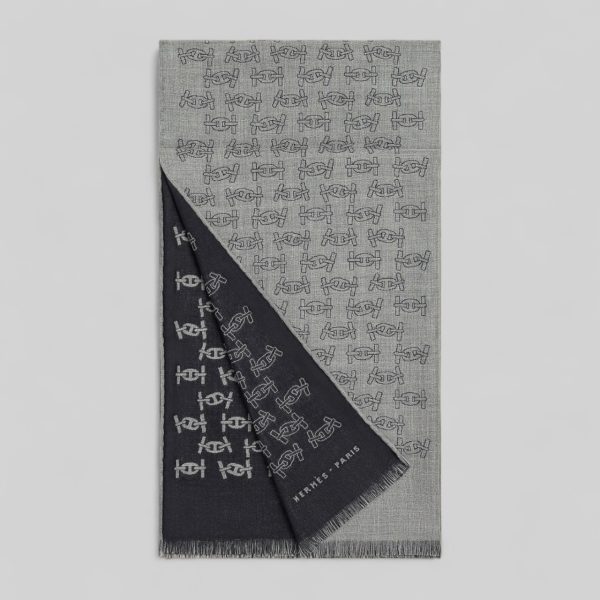 HERMÈS - PARIS